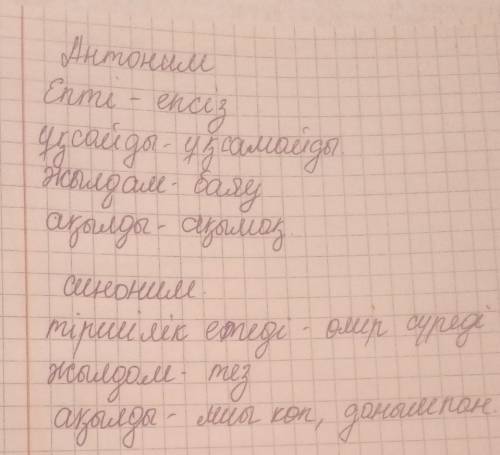 Антоним
Епті - епсіз
ұқсайды - ұқсамайды.
жылдам - баяу
ақылды - ақымақ.
синоним.
тіршілік етеді - өмір сүреді
жылдам - тез
ақылды - миы көп, данышпан.